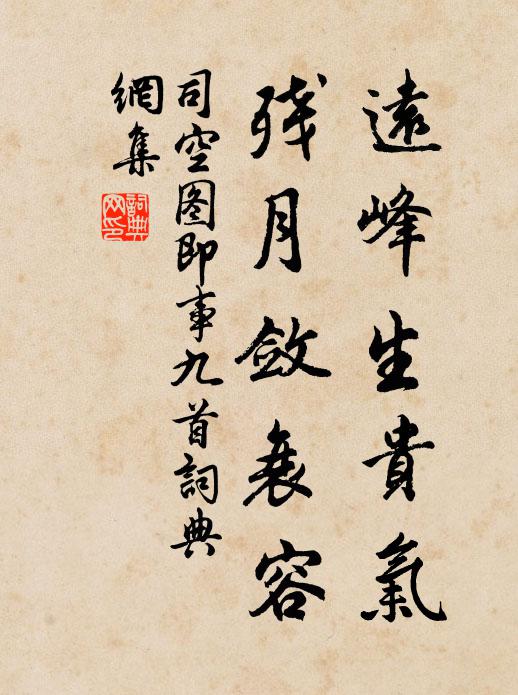 遠峰生貴氣
残月斂衰容
司空图即事九首詞典
網集
詞典
网印